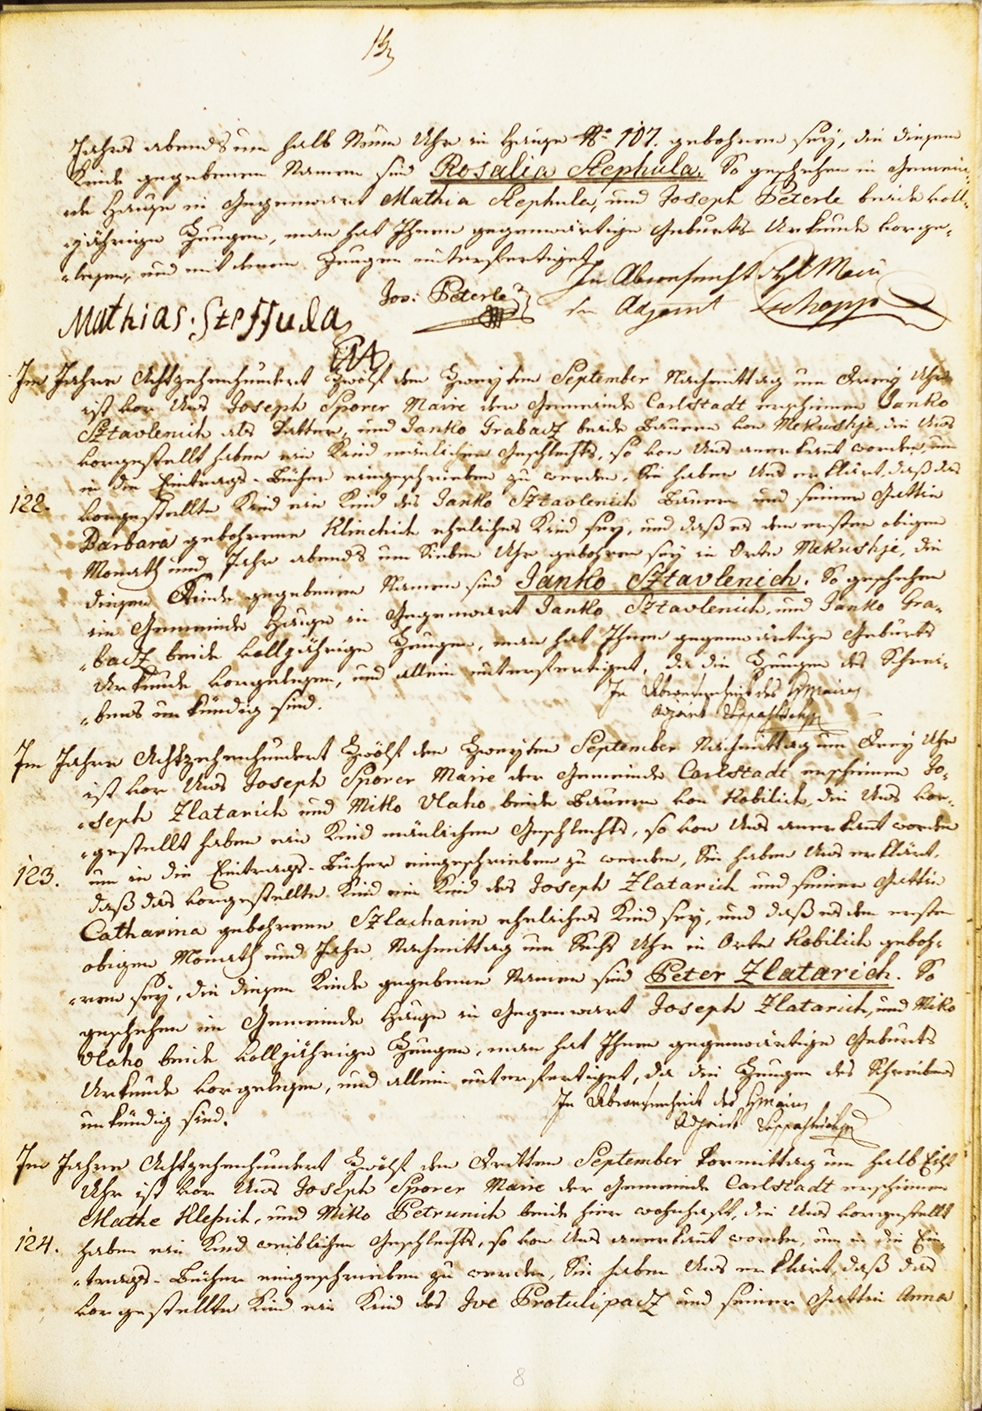 Jahrs abends um halb Neun Uhr in Hauße No 107. gebohren sey, die diesem
Kinde gegebenen Namen sind Rosalia Stephula. So geschehen in Gemein-
de Hause in Gegenwart Mathia Stephula, und Joseph Peterle beide voll-
jährige Zeugen, man hat Ihnen gegenwärtige Geburts Urkunde vorge-
-lesen, und mit denen Zeugen unterfertiget.
In Abwesenheit des H Maire
Jos: Peterle
der Adjoint
Mathias: Steffula
Im Jahre Achtzehenhundert Zwölf den Zweyten September Nachmittag um Drey Uhr
ist vor Uns Joseph Sporer Maire der Gemeinde Carlstadt erschienen Janko
Sztavlenich als Vatter, und Janko Grabacz beide Bauern von Mekushje, die Uns
vorgestellt haben ein Kind mänlichen Geschlechts, so von Uns anerkannt worden, um
in die Eintrags-Bücher eingeschrieben zu werden. Sie haben Uns erklärt, daß das
122. vorgestellte Kind ein Kind des Janko Sztavlenich Bauern und seiner Gattin
Barbara gebohrene Klinchich eheliches Kind sey, und daß es den ersten obigen
Monath und Jahr abends um Sieben Uhr gebohren sey in Orte Mekushje, die
diesem Kinde gegebenen Namen sind Janko Sztavlenich. So geschehen
im Gemeinde Hause in Gegenwart Janko Sztavlenich, und Janko Gra-
-bacz beide volljährige Zeugen, man hat Ihnen gegenwärtige Geburts
Urkunde vorgelesen, und allein unterfertiget, da die Zeugen des Schrei-
-bens unkündig sind.
In Abwesenheit des H Maires
Adjoint
Im Jahre Achtzehenhundert Zwölf den Zweyten September Nachmittag um Drey Uhr
ist vor Uns Joseph Sporer Maire der Gemeinde Carlstadt erschienen Jo-
-seph Zlatarich und Mikko Vlaho beide Bauern von Kobilich, die Uns vor-
-gestellt haben ein Kind mänlichen Geschlechts, so von Uns anerkannt worden
um in die Eintrags-Bücher eingeschrieben zu werden, Sie haben Uns erklärt,
123. daß das vorgestellte Kind ein Kind des Joseph Zlatarich und seiner Gattin
Catharina gebohrene Szlachanin eheliches Kind sey, und daß es den ersten
obigen Monath und Jahr Nachmittag um Sechs Uhr in Orte Kobilich geboh-
-ren sey, die diesem Kinde gegebenen Namen sind Peter Zlatarich. So
geschehen im Gemeinde Hause in Gegenwart Joseph Zlatarich, und Miko
Vlaho beide volljährige Zeugen, man hat Ihnen gegenwärtige Geburts
Urkunde vorgelesen, und allein unterfertiget, da die Zeugen des Schreibens
unkündig sind.
In Abwesenheit des H Maires
Adjoint
Im Jahre Achtzehenhundert Zwölf den Dritten September Vormittag um halb Eilf
Uhr ist vor Uns Joseph Sporer Marie der Gemeinde Carlstadt erschienen
Mathe Klepich, und Miko Petrunich beide hier wohnhaft, die Uns vorgestellt
124. haben ein Kind weiblichen Geschlechts, so von Uns anerkannt worden, um in die Ein-
-trags-Bücher eingeschrieben zu werden, Sie haben Uns erklärt, daß das
vorgestellte Kind ein Kind des Ive Protulipacz und seiner Gattin Anna
8